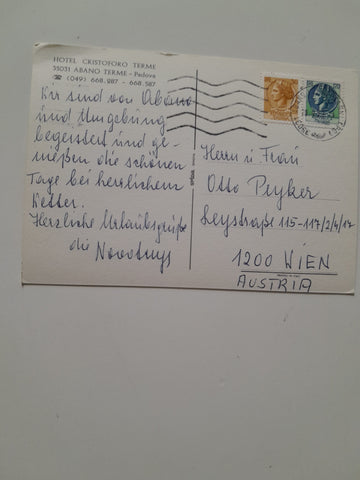 HOTEL CRISTOFORO TERME
35031 ABANO TERME - Padova
☎ (049) 668.287 - 668.587
Wir sind von Abano
und Umgebung
begeistert und ge-
nießen die schönen
Tage bei herrlichem
Wetter.
Herzliche Urlaubsgrüße
die Novotnys
Herrn u Frau
Otto Peyker
Leystraße 115-117/2/4/17
1200 WIEN
AUSTRIA